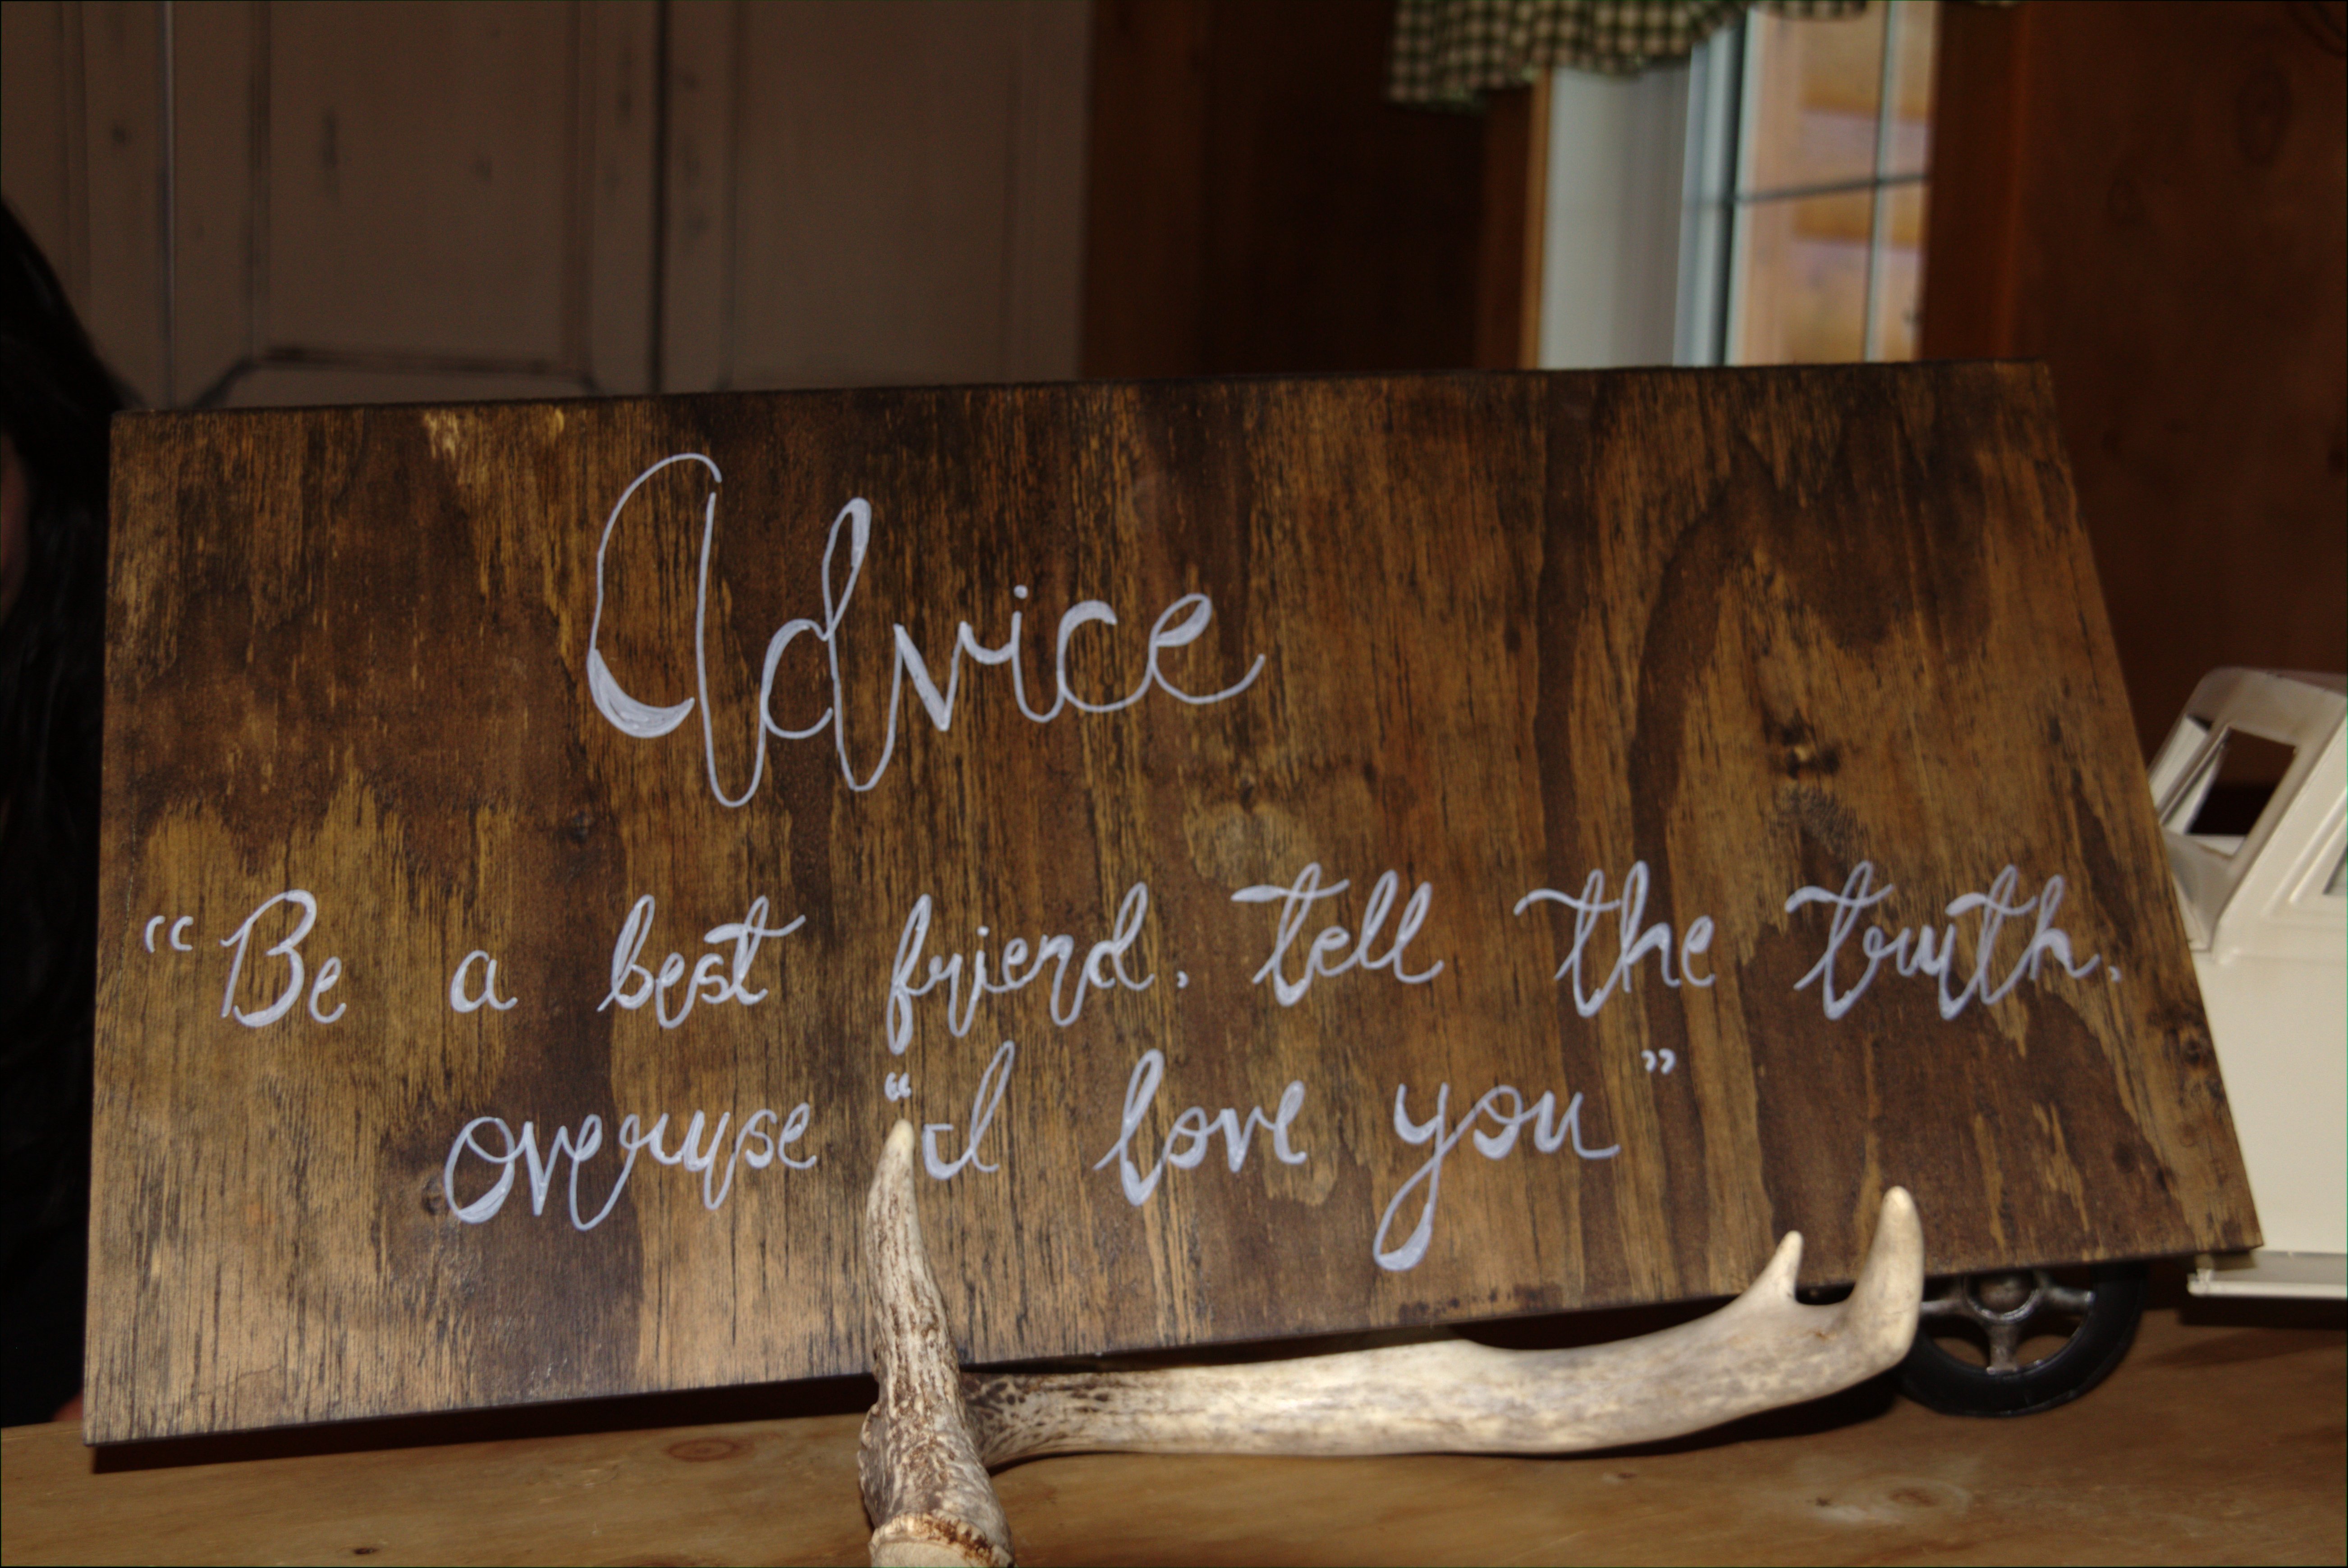 Advice
“Be a best friend, tell the truth,
overuse “I love you”